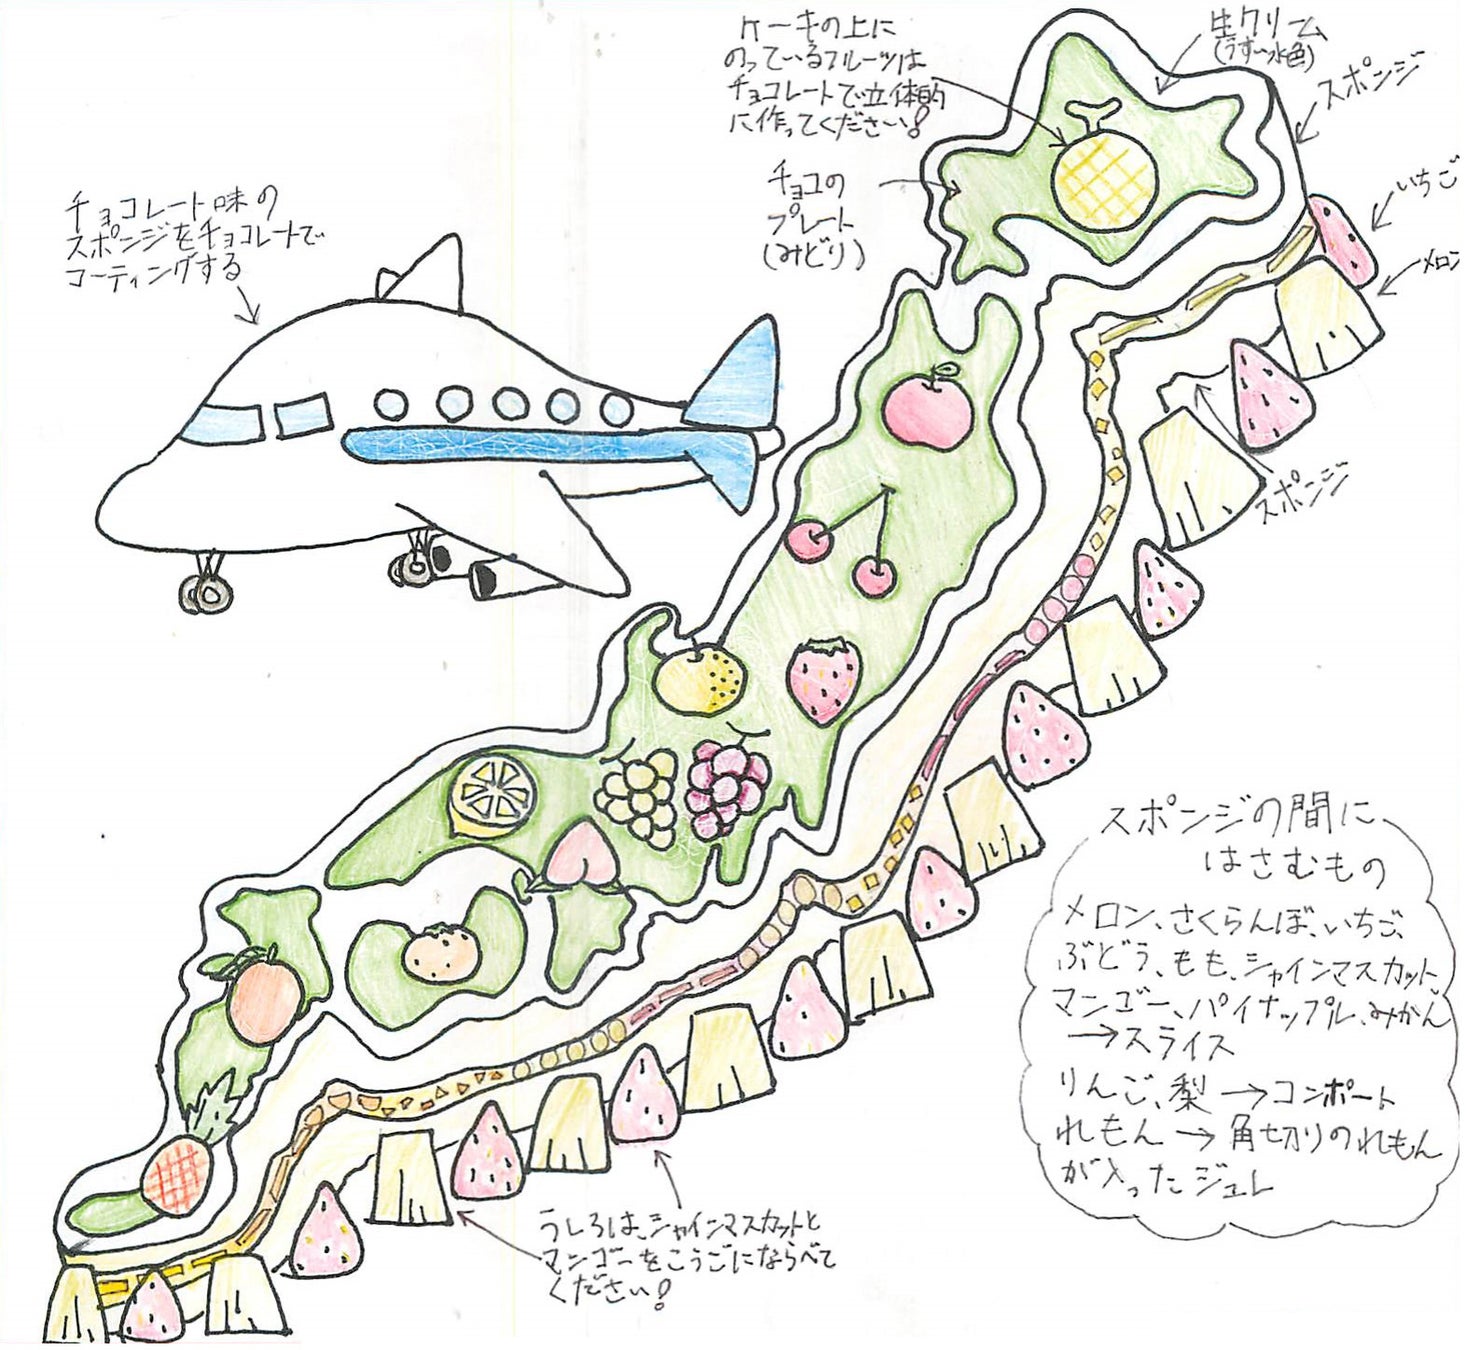 チョコレート味の
スポンジをチョコレートで
コーティングする
ケーキの上に
のっているフルーツは
チョコレートで立体的
に作ってください!
チョコの
プレート
(みどり)
生クリーム
(うすい水色)
スポンジ
いちご
メロン
スポンジ
スポンジの間に
はさむもの
メロン、さくらんぼ、いちご、
ぶどう、もも、シャインマスカット、
マンゴー、パイナップル、みかん
→スライス
りんご、梨→コンポート
れもん→角切りのれもん
が入ったジュレ
うしろは、シャインマスカットと
マンゴーをこうごにならべて
ください!